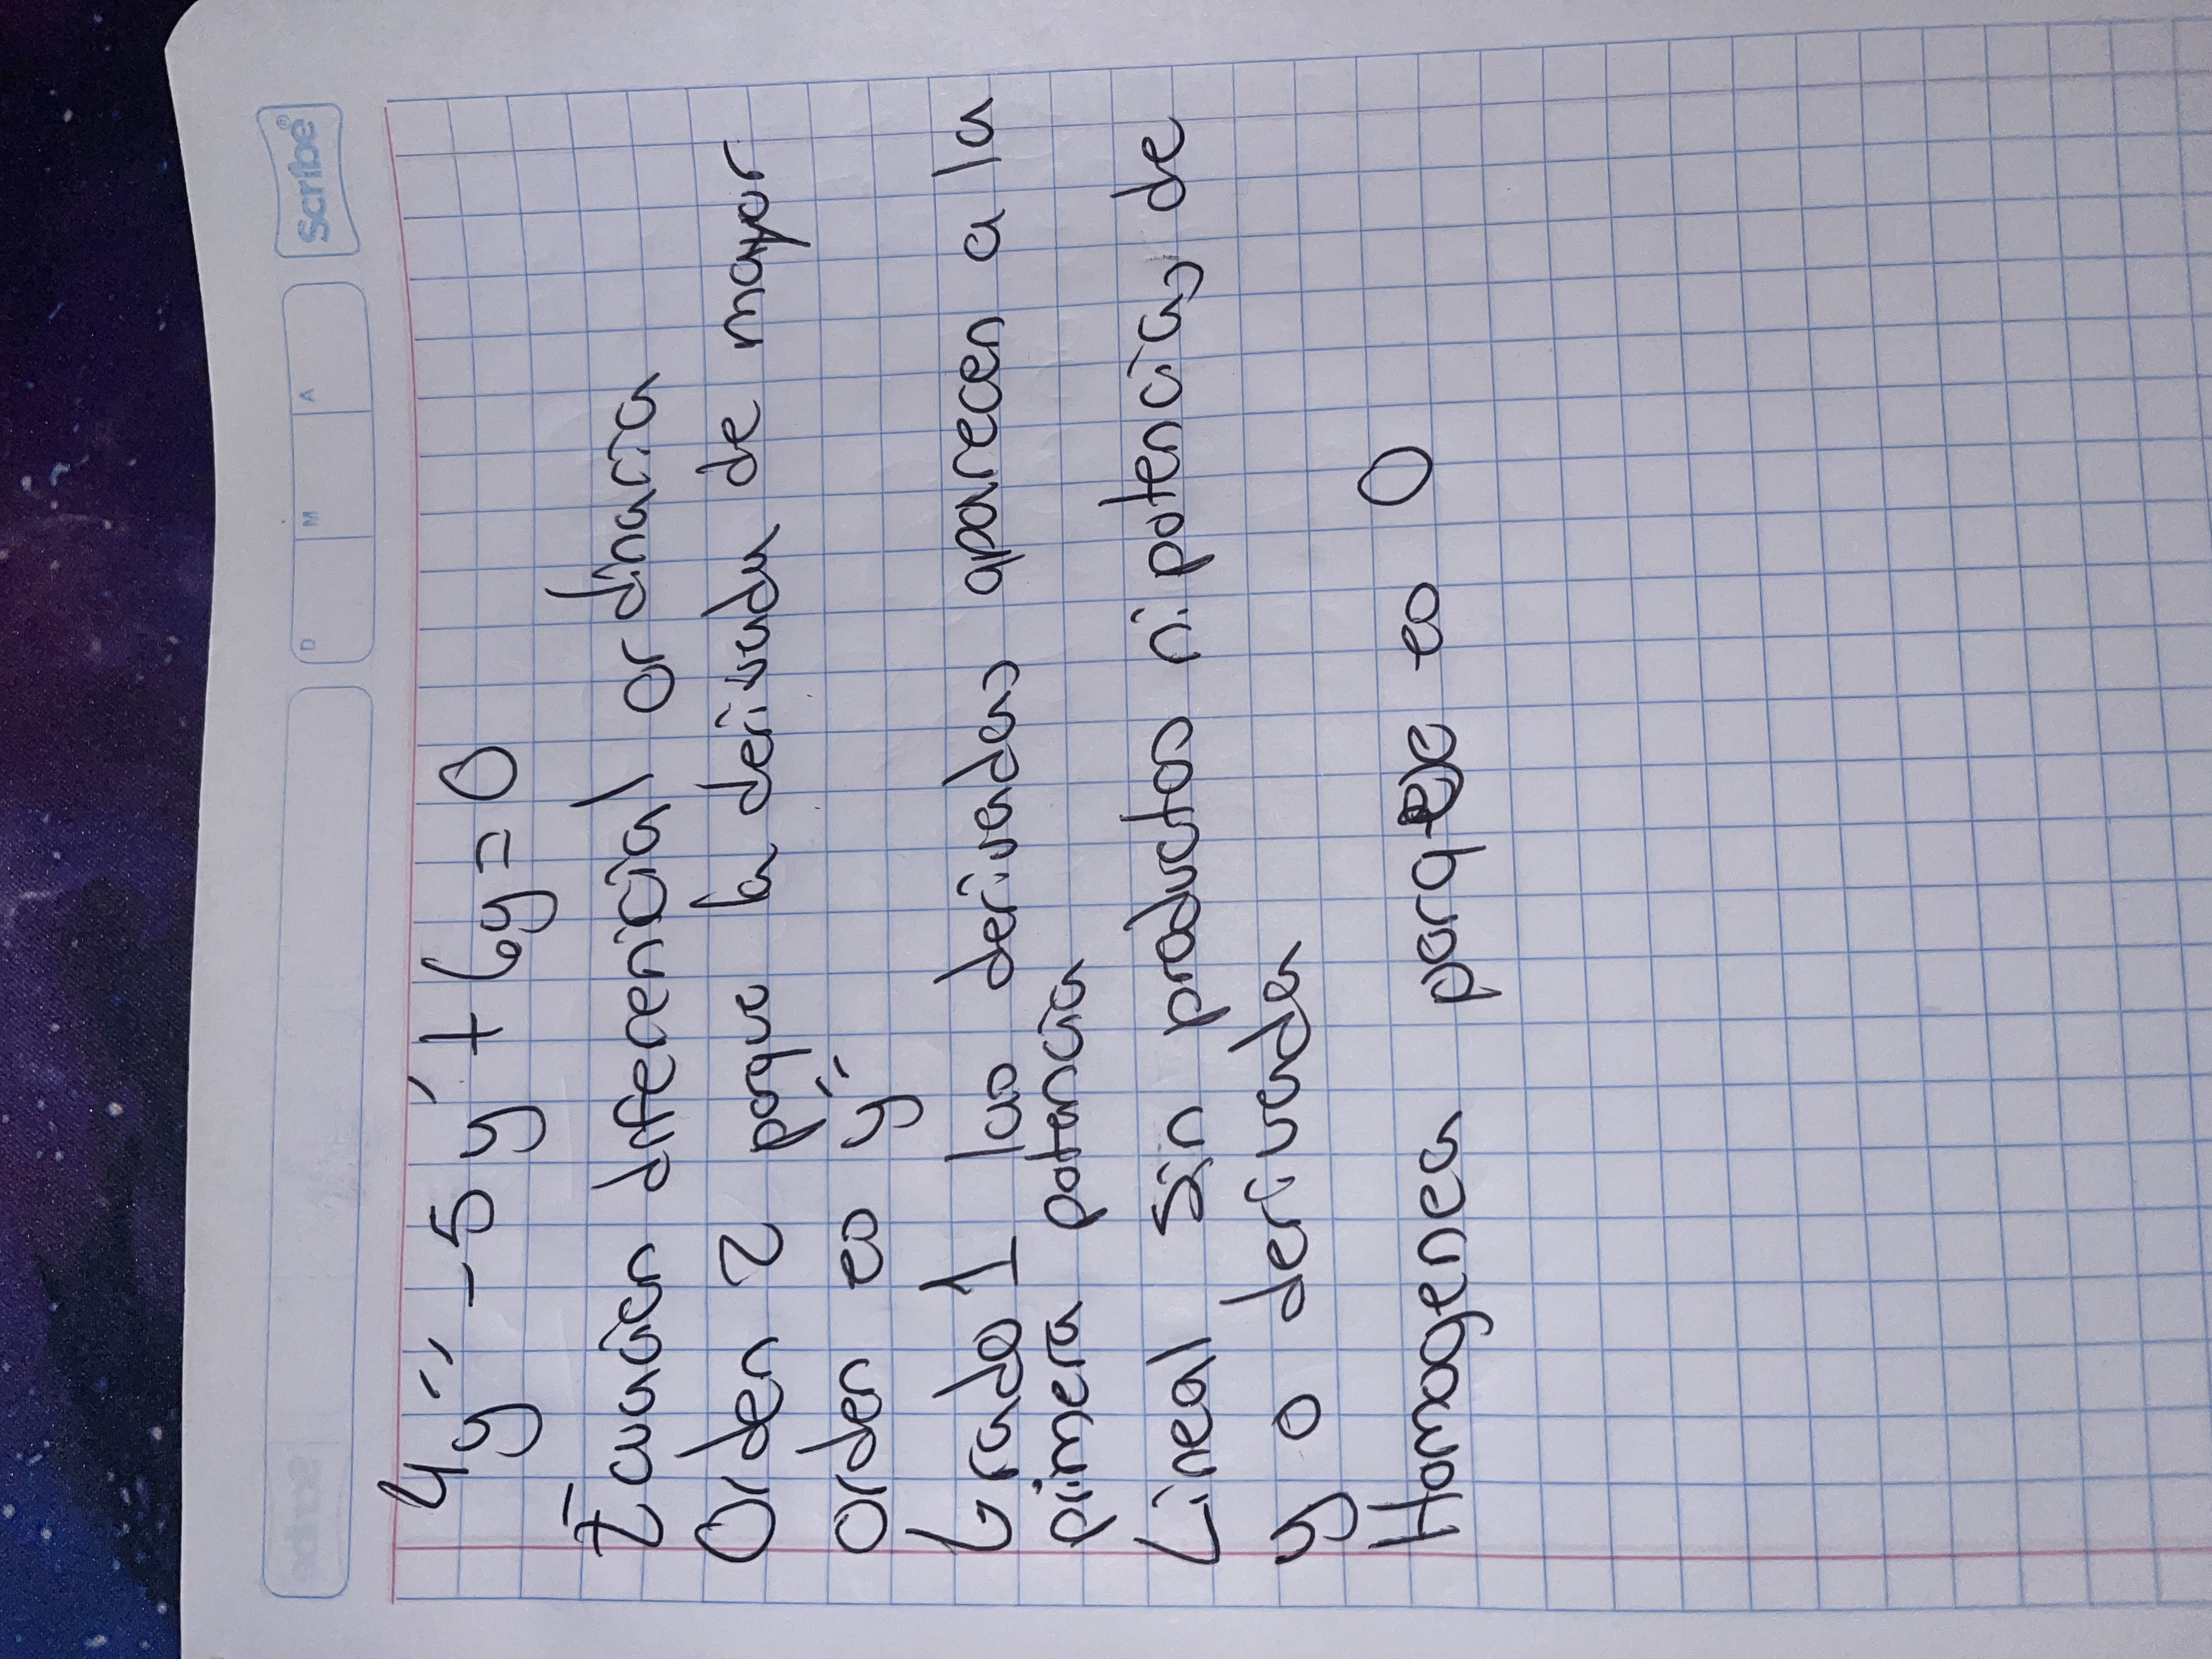 Scribe
D M A
Scribe®
4y'' - 5y' + 6y = 0
Ecuación diferencial ordinaria
Orden 2 porque la derivada de mayor
orden es y''
Grado 1 las derivadas aparecen a la
primera potencia
Lineal sin productos ni potencias de
y o derivada
Homogenea porque es 0